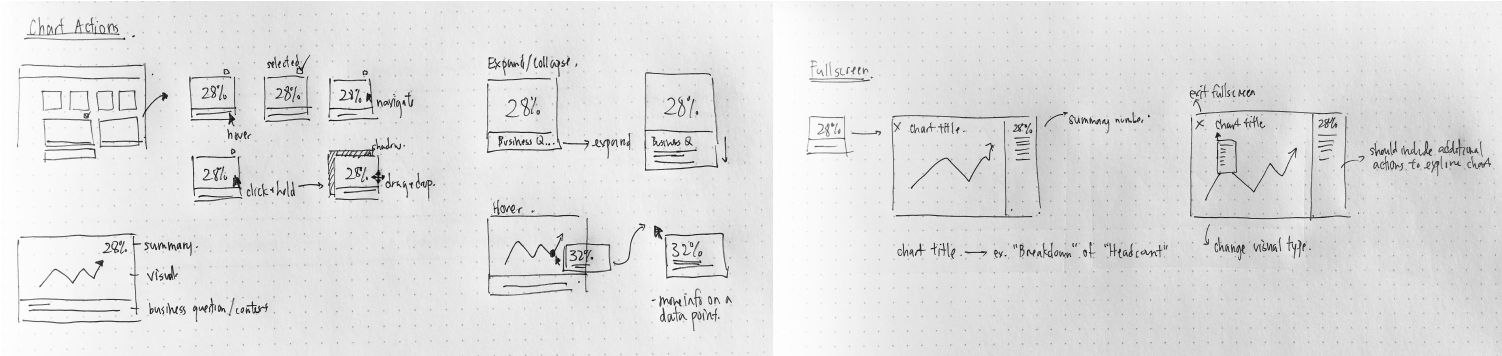 Chart Actions.
selected
28%
28%
28%
navigate
hover
28%
click + hold
shadow.
28%
drag + drop.
28%
summary.
visual
business question/context
Expand/Collapse.
28%
Business Q...
expand
28%
Business Q
Hover.
32%
32%
- more info on a
data point.
Fullscreen.
28%
X chart title.
28%
summary number.
chart title → ex. "Breakdown" of "Headcount"
exit fullscreen
X chart title
28%
should include additional
actions to explore chart
change visual type.